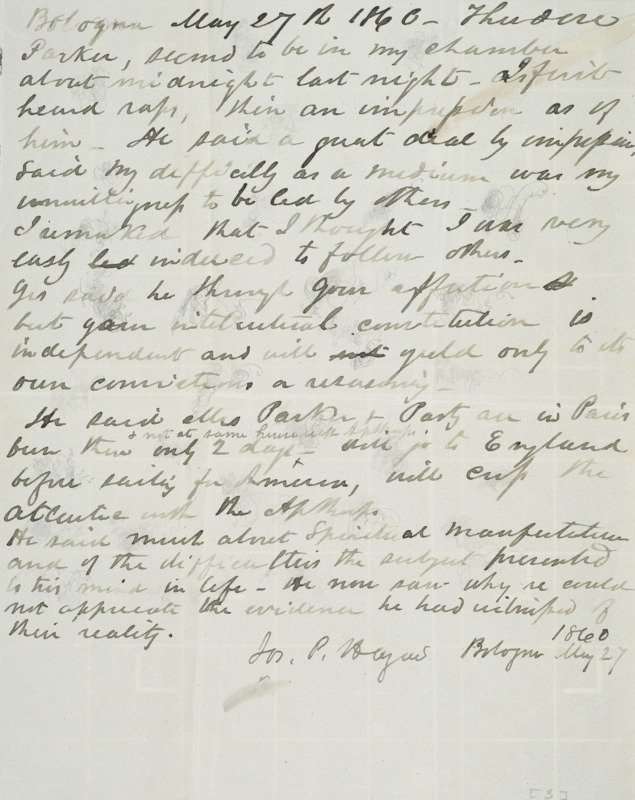 Bologna May 27th 1860 - Theodore
Parker, seemd to be in my chamber
about midnight last night - I first
heard raps, then an impression as of
him - He said a great deal by impression,
said my difficully as a medium was my
unwillingness to be led by others -
I remarked that I thought I was very
easly led induced to follow others -
yes said he through your affections
but your intellectual constitution is
independent and will not yield only to its
own convictions or reasoning -
He said Mrs Parker & Party are in Paris
& not at same house with Apthorps
been there only 2 days - will go to England
before sailing for America, will cross the
atlantic with the Apthorps
He said much about Spiritual Manifestation
and of the difficulties the subject presented
to his mind in life - He now saw why he could
not appreciate the evidence he had witnessed of
their reality.
1860
Jos. P. Hazard Bologna May 27
[3]